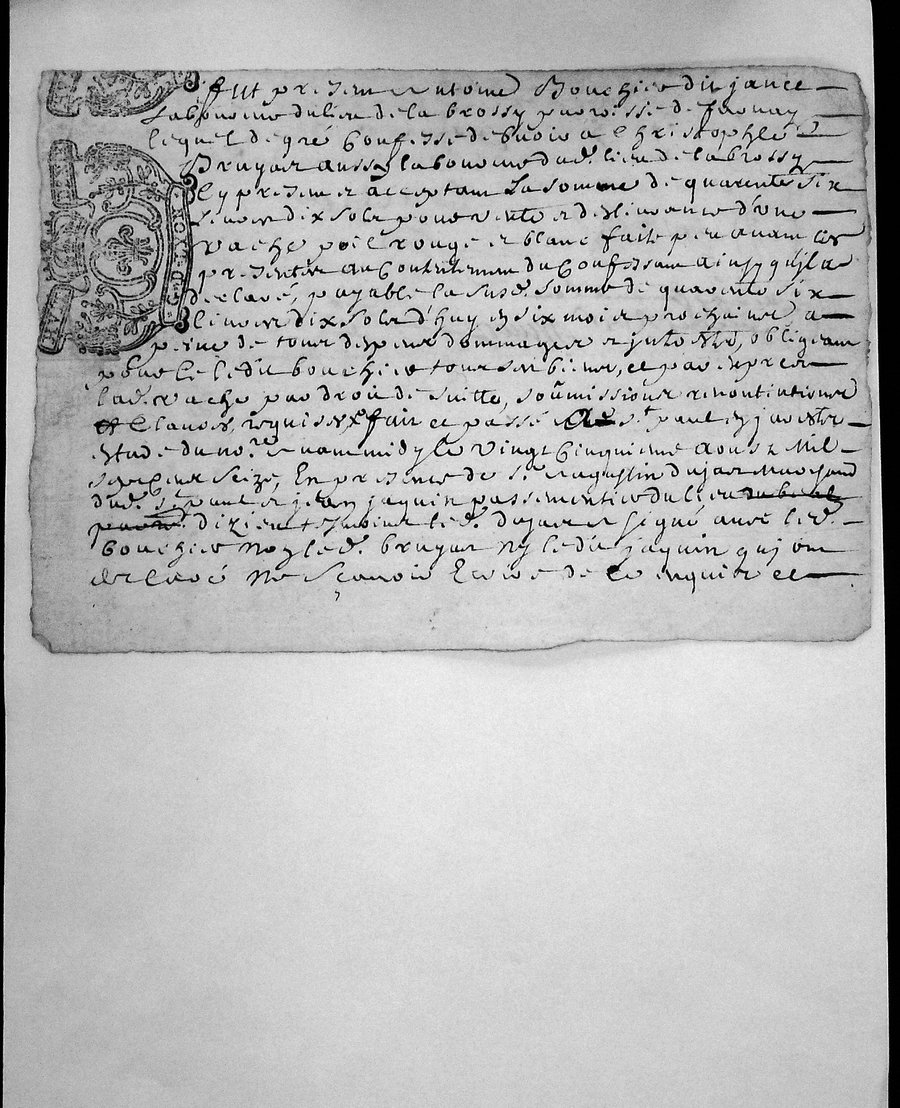 fut present Antoine Bouchier dit jance
Laboureur du lieu de la brossy parroisse de farnay
lequel de gré Confesse debvoir a Christophle
Bruyas aussy laboureur dud. lieu de la brossy
Cy present et acceptant La somme de quarente six
Livres dix sols pour vente et deslivrance d'une
vache poil rouge et blanc faite peu avant les
presentes au Contentement du Confessant ainsy qu'jl a
declaré, payable la susd. somme de quarente six
livres dix sols d'huy en six mois prochains a
peine de tous despens dommages et jnterestz, obligeant
pour ce led. bouchier tous ses biens, et par exprès
lad. vache par droit de suitte, soumissions renontiations
et Clauses requises, fait et passé a St. paul en jarestz
estude du nore. avant midy le vingt Cinquieme aoust Mil
sept Cent Seize, En presence de Sr. augustin dujast Marchand
dud. St. paul et jean jaquin passementier du lieu
dizieu tesmoins led. dujast et signé avec led.
bouchier non led. bruyas ny led. jaquin qui ont
declaré ne sçavoir Escrire de ce enquis et
G. D. LYON